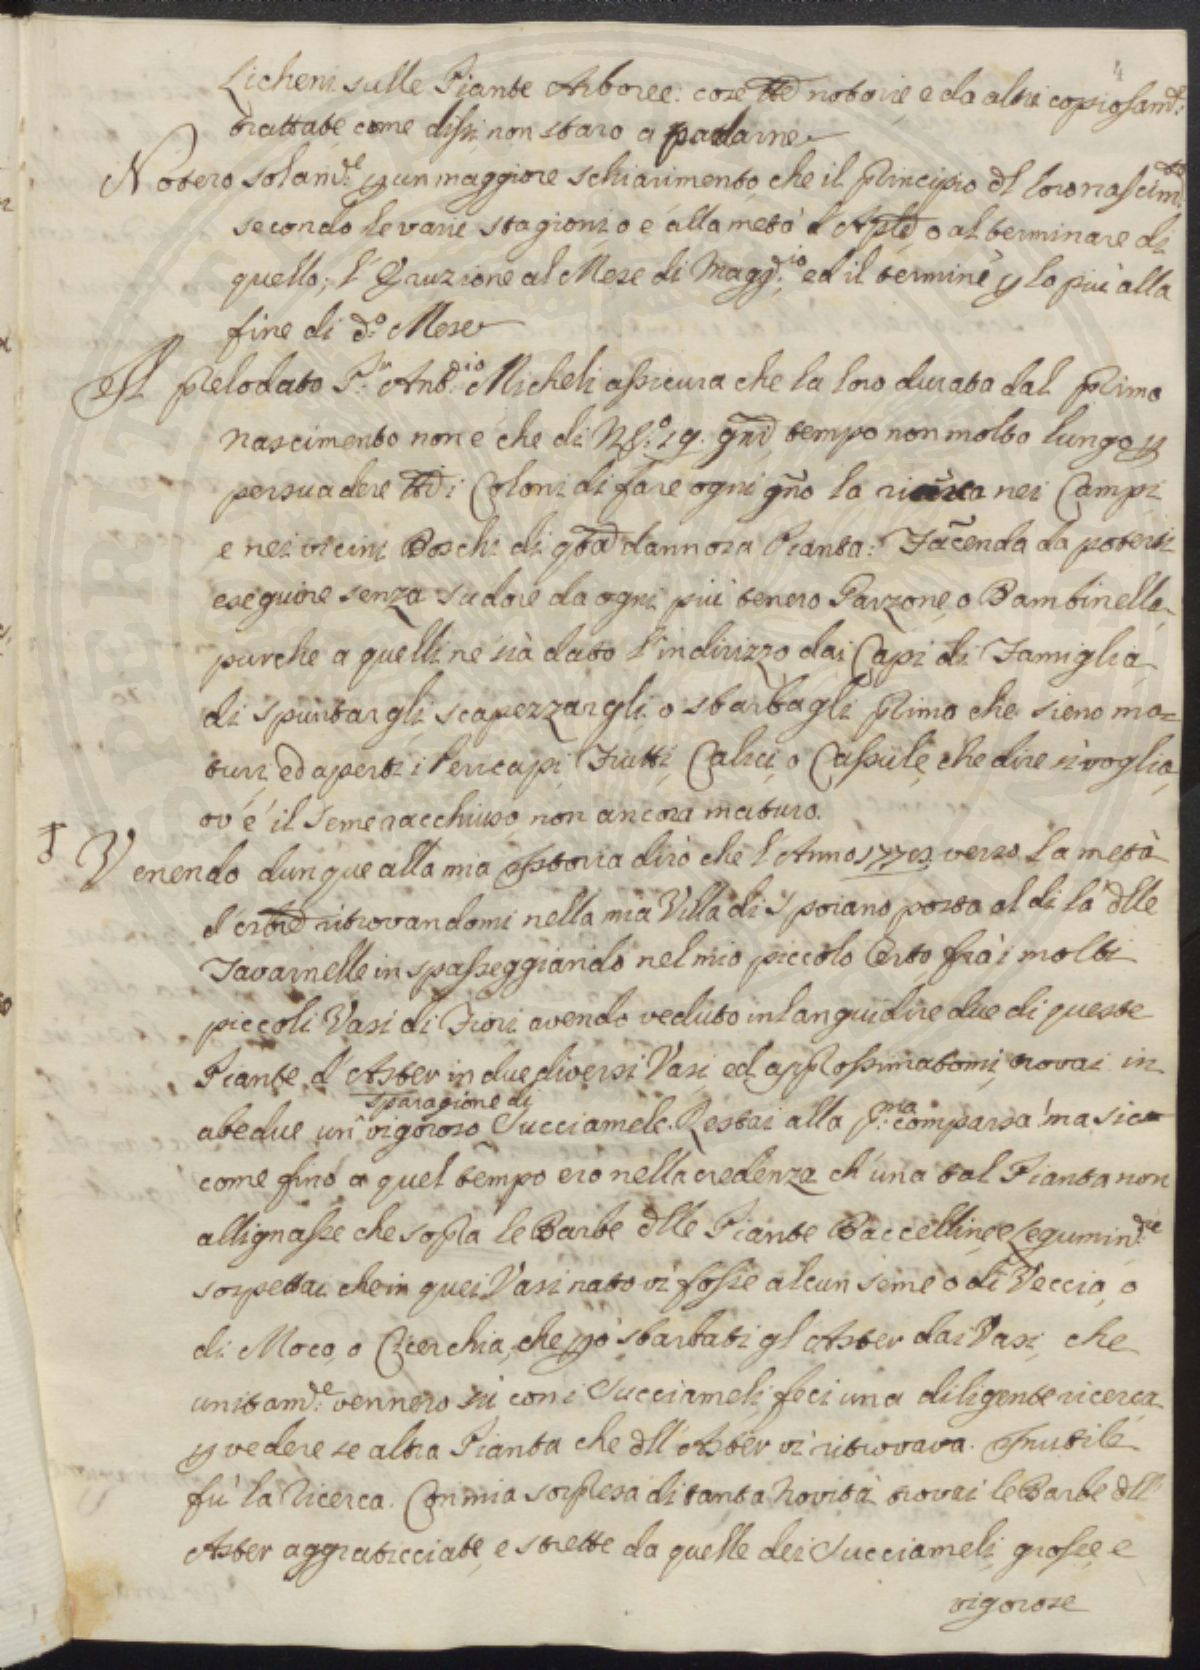 4
Licheni sulle Piante Arboree: cose tte notorie e da altri copiosamte:
trattate, come dissi, non starò a parlarne
Noterò solamte: p un maggiore schiarimento, che il Principio dl loro nascimto:
secondo le varie stagioni, o è alla metà d'Aple, o al terminare di
quello; l'Eruzione al Mese di Magg:io ed il termine p lo più alla
fine di do: Mese
Il prelodato P:r Ant:io Micheli assicura che la loro durata dal Primo
nascimento non è che di No: 19. gni, tempo non molto lungo p
persuadere tti i Coloni di fare ogni gno la ricerca nei Campi
e nei vicini Boschi di qta dannosa Pianta: Facenda da potersi
eseguire senza sudore da ogni più tenero Garzone, o Bambinello,
purche a quelli ne sia dato l'indirizzo dai Capi di Famiglia
di spuntargli, scapezzargli, o sbarbagli Prima che sieno ma=
turi, ed aperti i Pericapi, Frutti, Calici, o Cassule, che dire si voglia,
ov'é il Seme racchiuso, non ancora maturo.
Venendo dunque alla mia Istoria dirò che l'Anno verso la metà
d' ritrovandomi nella mia Villa di Spoiano posta al di là dlle
Tavarnelle in spasseggiando nel mio piccolo Orto frà i molti
piccoli Vasi di Fiori avendo veduto inlanguidire due di queste
Piante d'Aster in due diversi Vasi, ed approssimatomi, trovai in
sparagione di
abedue un vigoroso Succiamele. Restai alla pma: comparsa! ma sic
come finò a quel tempo ero nella credenza, ch'una tal Pianta non
allignasse che sopra le Barbe dlle Piante Baccelline, e Legumin:
sospettai che in quei Vasi nato vi fosse alcun seme o di Veccia, o
di Moco, o Cicerchia, che pò sbarbati gl'Aster dai Vasi, che
unitamte: vennero sù con i Succiameli, feci una diligente ricerca
p vedere se altra Pianta che dll'Aster vi ritrovava. Inutile
fù la Ricerca. Con mia sorpresa di tanta Novità trovai le Barbe dll'
Aster aggraticciate, e strette da quelle dei Succiameli, grosse e
vigorose